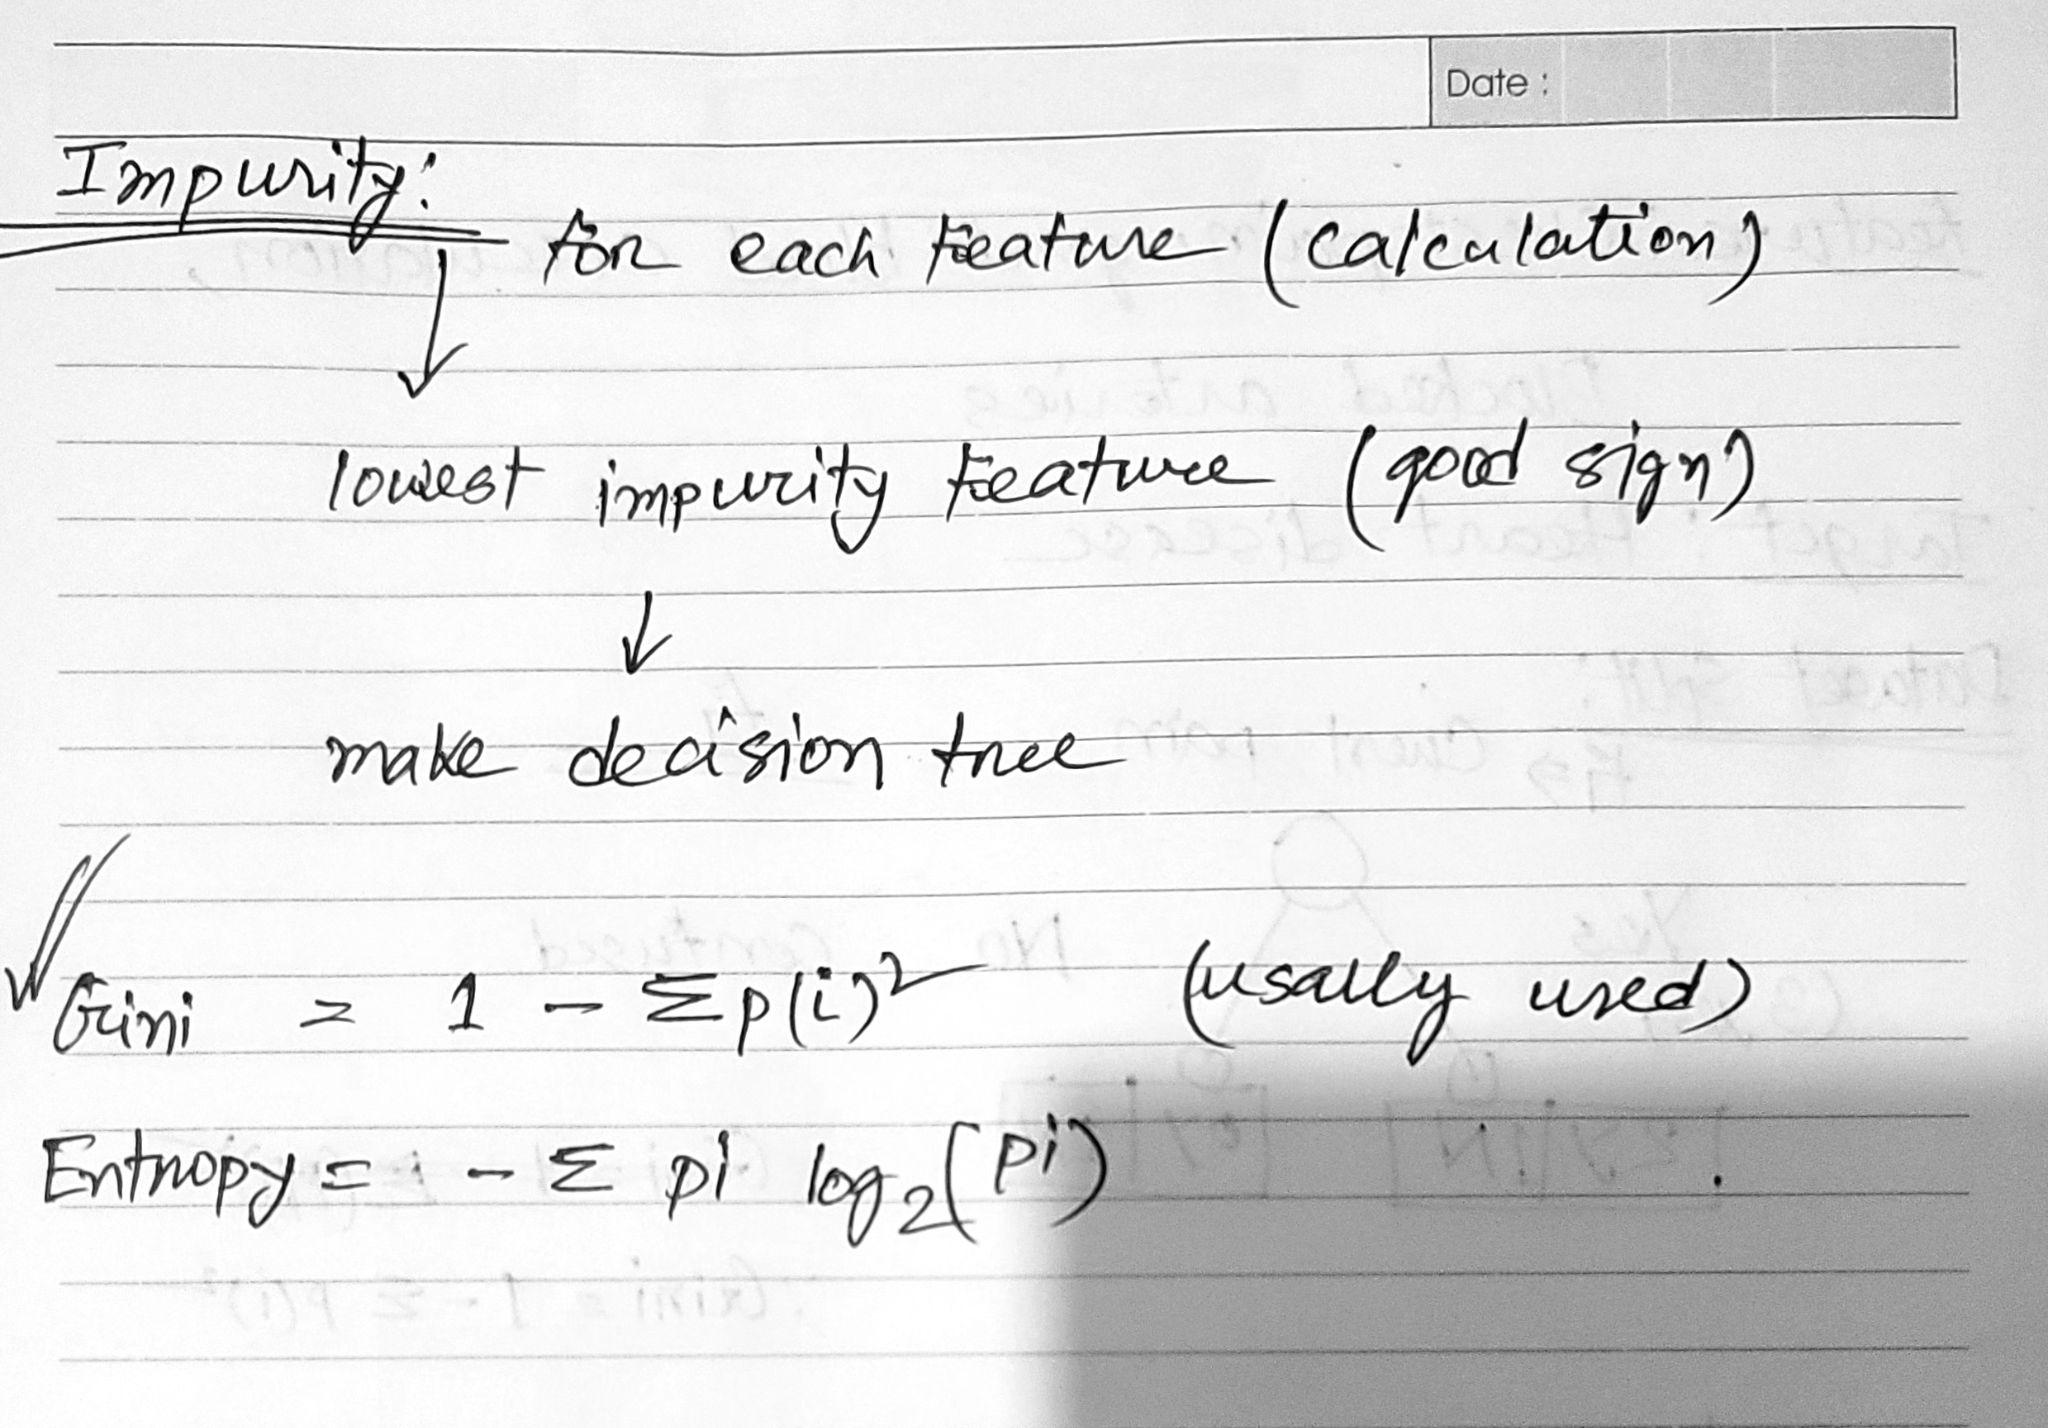 Date :
Impurity:
for each feature (calculation)
lowest impurity feature (good sign)
make decision tree
Gini = 1 - Σp(i)²   (usally used)
Entropy = - Σ pi log₂(pi)